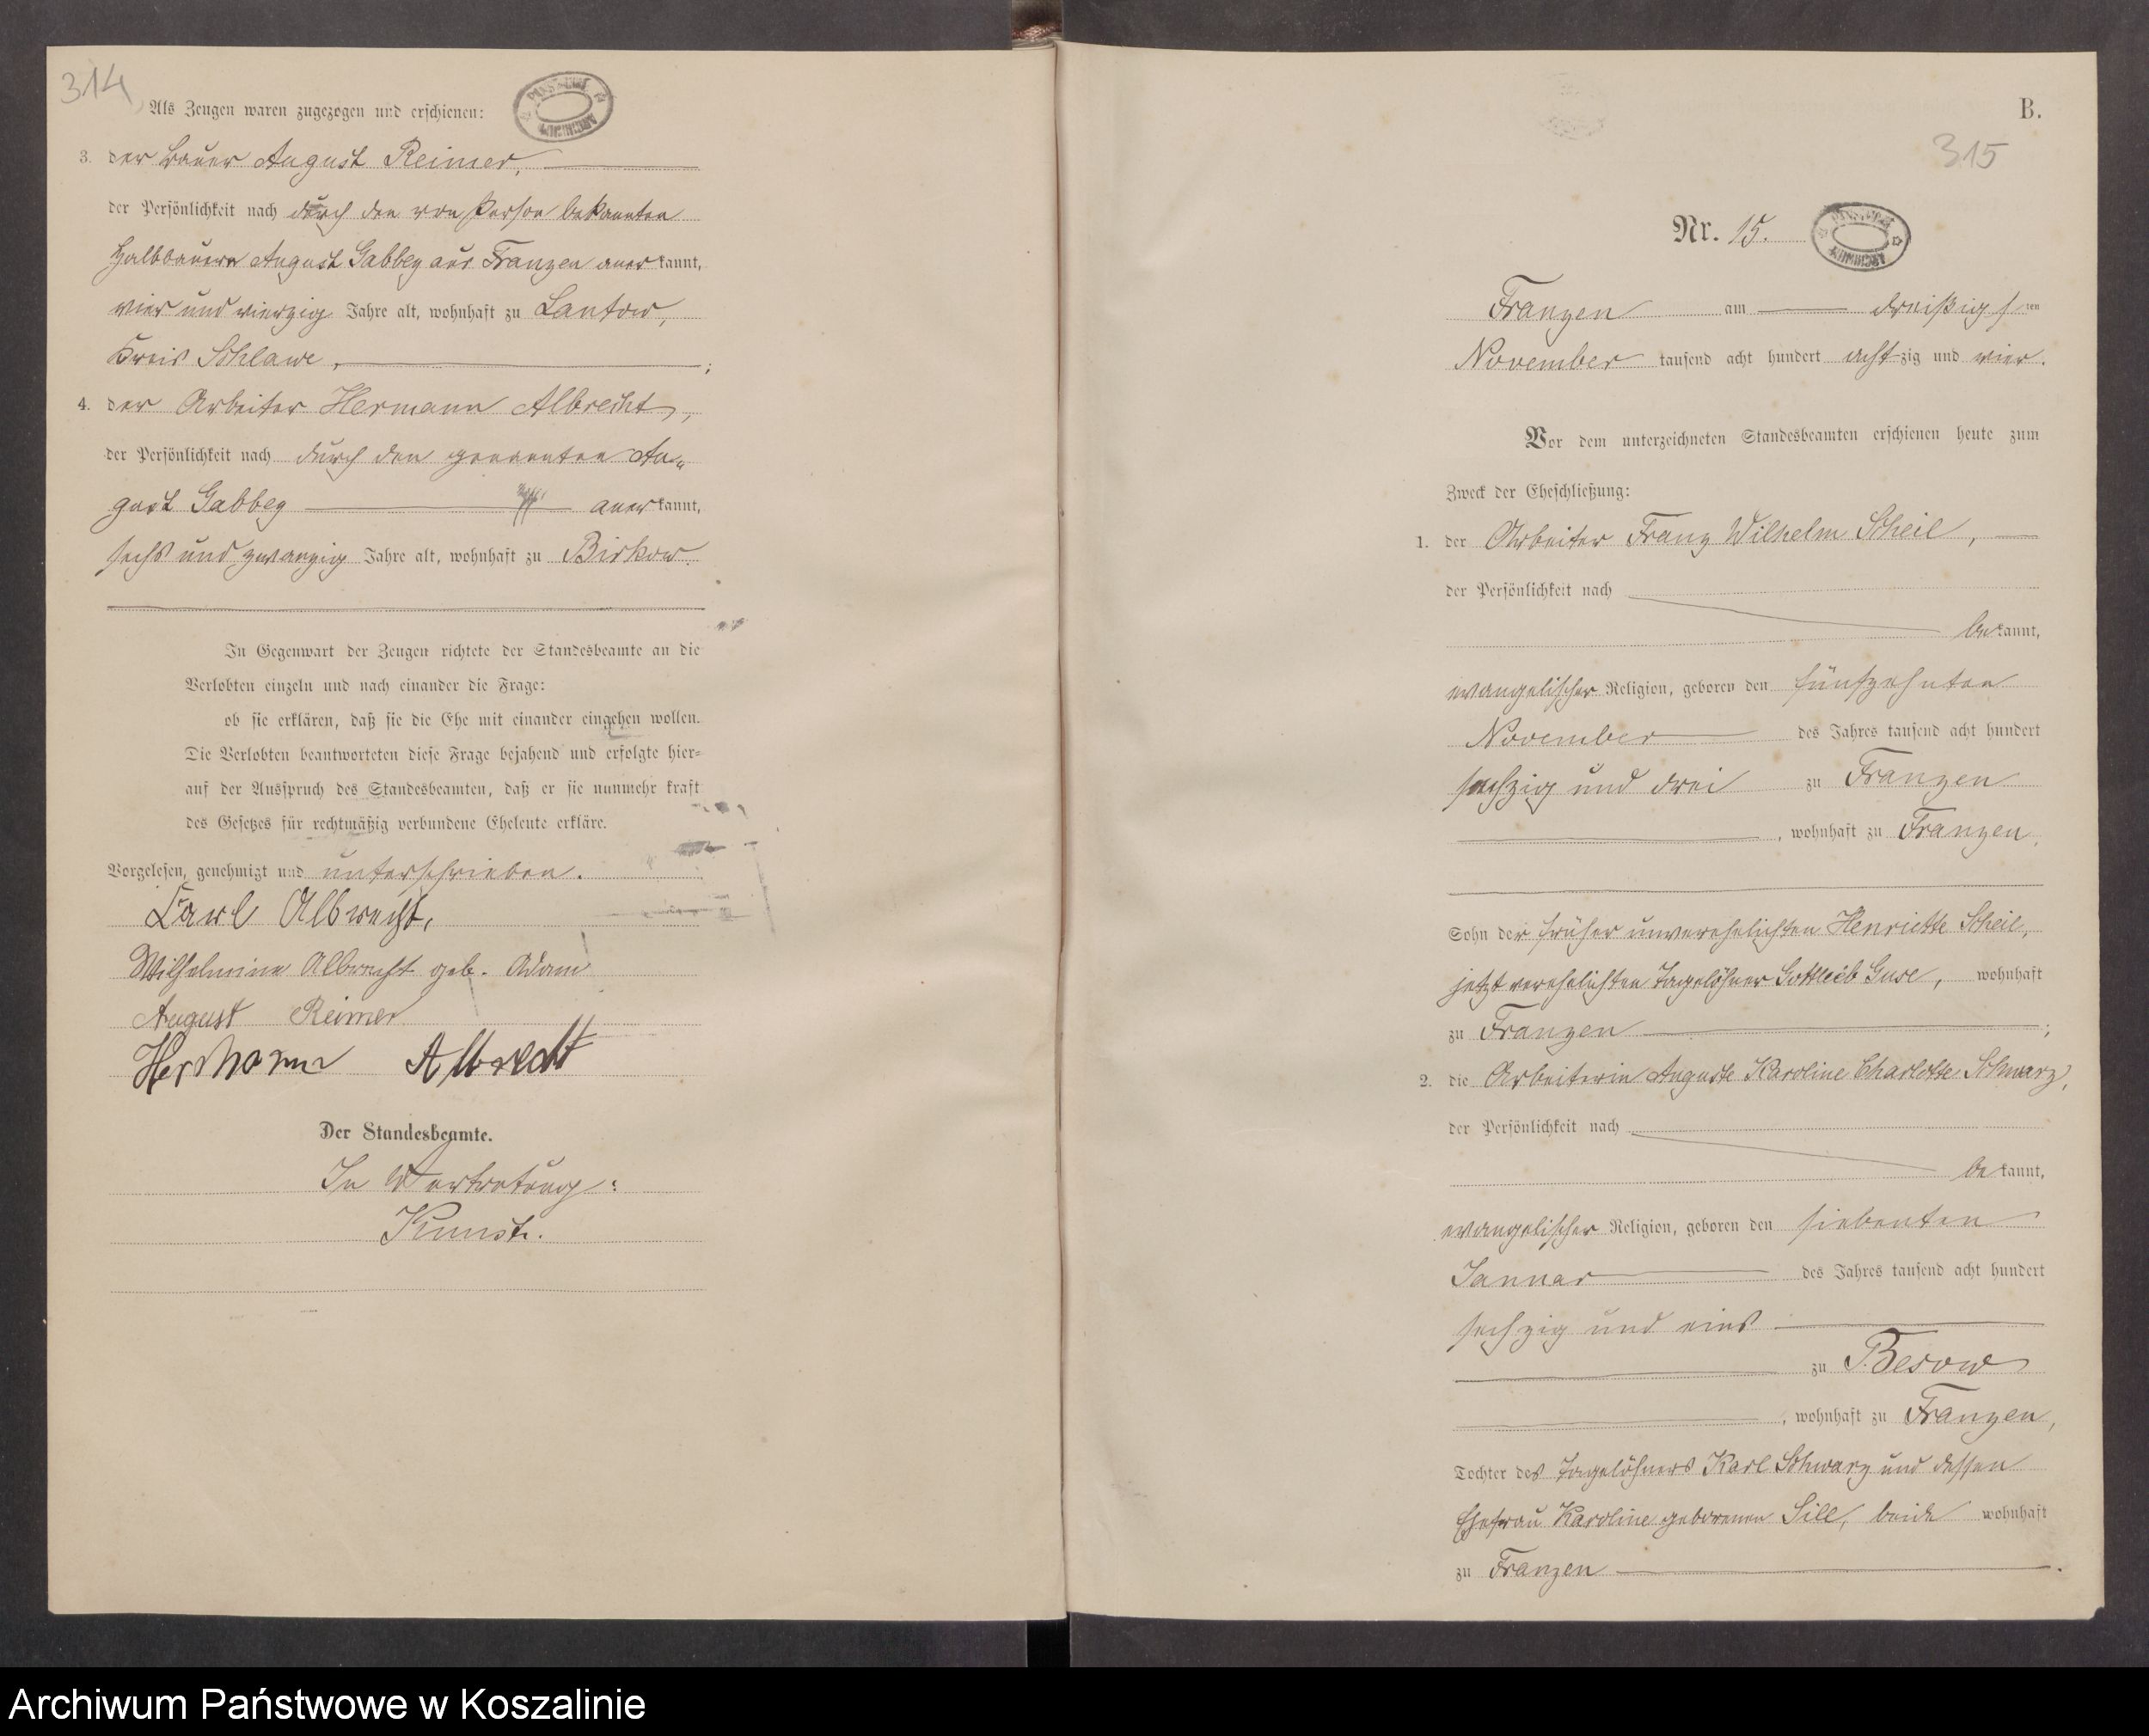 314
Als Zeugen waren zugezogen und erschienen:
3. der Bauer August Reimer,
der Persönlichkeit nach durch den von Person bekannten
Halbbauern August Gabbey aus Franzen anerkannt,
vier und vierzig Jahre alt, wohnhaft zu Lantow,
Kreis Schlawe, ;
4. der Arbeiter Hermann Albrecht,
der Persönlichkeit nach durch den genannten Au-
gust Gabbey anerkannt,
sechs und zwanzig Jahre alt, wohnhaft zu Birkow.
In Gegenwart der Zeugen richtete der Standesbeamte an die
Verlobten einzeln und nach einander die Frage:
ob sie erklären, daß sie die Ehe mit einander eingehen wollen.
Die Verlobten beantworteten diese Frage bejahend und erfolgte hier-
auf der Ausspruch des Standesbeamten, daß er sie nunmehr kraft
des Gesetzes für rechtmäßig verbundene Eheleute erkläre.
Vorgelesen, genehmigt und unterschrieben.
Carl Albrecht,
Wilhelmine Albrecht geb. Adam
August Reimer
Hermann Albrecht
Der Standesbeamte.
In Vertretung:
Kunst.
B.
315
Nr. 15.
Franzen am dreißigsten
November tausend acht hundert achtzig und vier.
Vor dem unterzeichneten Standesbeamten erschienen heute zum
Zweck der Eheschließung:
1. der Arbeiter Franz Wilhelm Scheil,
der Persönlichkeit nach
bekannt,
evangelischer Religion, geboren den fünfzehnten
November des Jahres tausend acht hundert
sechzig und drei zu Franzen
, wohnhaft zu Franzen,
Sohn der früher unverehelichten Henriette Scheil,
jetzt verehelichten Tagelöhner Gottlieb Guse, wohnhaft
zu Franzen ;
2. die Arbeiterin Auguste Karoline Charlotte Schwarz,
der Persönlichkeit nach
bekannt,
evangelischer Religion, geboren den siebenten
Januar des Jahres tausend acht hundert
sechzig und eins
zu Besow
, wohnhaft zu Franzen,
Tochter des Tagelöhners Karl Schwarz und dessen
Ehefrau Karoline geborenen Sill, beide wohnhaft
zu Franzen .
Archiwum Państwowe w Koszalinie